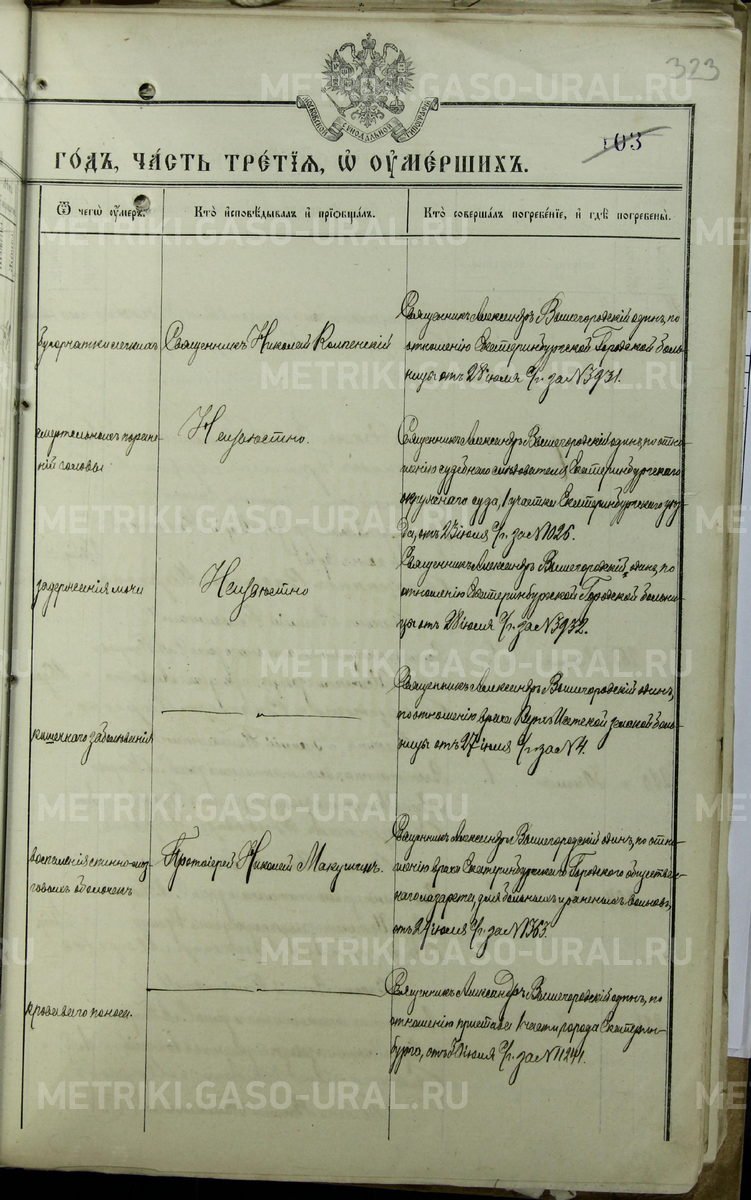 323
103
МОСКОВСКОЙ СѴНОДАЛЬНОЙ ТИПОГРАФІИ
ГО́ДЪ, ЧА́СТЬ ТРЕ́ТІѦ, Ѡ ОУ҆МЕ́РШИХЪ.
Ѿ чегѡ̀ ᲂу҆́меръ.
Кто̀ и҆сповѣ́дывалъ и҆ прїѡбща́лъ.
Кто̀ соверша́лъ погребе́нїе, и҆ гдѣ̀ погребены̀.
бугорчатки легкихъ
Священникъ Николай
Священникъ Александръ Вышегородскій одинъ, по
отношенію Екатеринбургской Городской боль-
ницы отъ 28 іюля с/г. за № 3931.
смертельныхъ поране-
ній головы
Неизвѣстно.
Священникъ Александръ Вышегородскій одинъ, по отно-
шенію судебнаго слѣдователя Екатеринбургскаго
окружнаго суда, 1 участка Екатеринбургскаго уѣз-
да, отъ 23 іюля с/г. за № 1026.
задержанія мочи
Неизвѣстно
Священникъ Александръ Вышегородскій, одинъ, по
отношенію Екатеринбургской Городской больни-
цы отъ 28 іюля с/г. за № 3932.
кишечнаго заболѣванія
Священникъ Александръ Вышегородскій одинъ,
по отношенію врача Верхъ Исетской земской боль-
ницы отъ 27 іюля с/г. за № 4.
воспаленія спинно-моз-
говыхъ оболочекъ
Протоіерей Николай Макушинъ.
Священникъ Александръ Вышегородскій одинъ, по отно-
шенію врача Екатеринбургскаго Городского обществен-
наго лазарета, для больныхъ и раненыхъ воиновъ,
отъ 29 іюля с/г. за № 1363.
кроваваго поноса.
Священникъ Александръ Вышегородскій одинъ, по
отношенію пристава 1 части города Екатерин-
бурга, отъ іюля с/г. за № 11241.
METRIKI.GASO-URAL.RU
METRIKI.GASO-URAL.RU
METRIKI.GASO-URAL.RU
METRIKI.GASO-URAL.RU
METRIKI.GASO-URAL.RU
METRIKI.GASO-URAL.RU
METRIKI.GASO-URAL.RU
METRIKI.GASO-URAL.RU